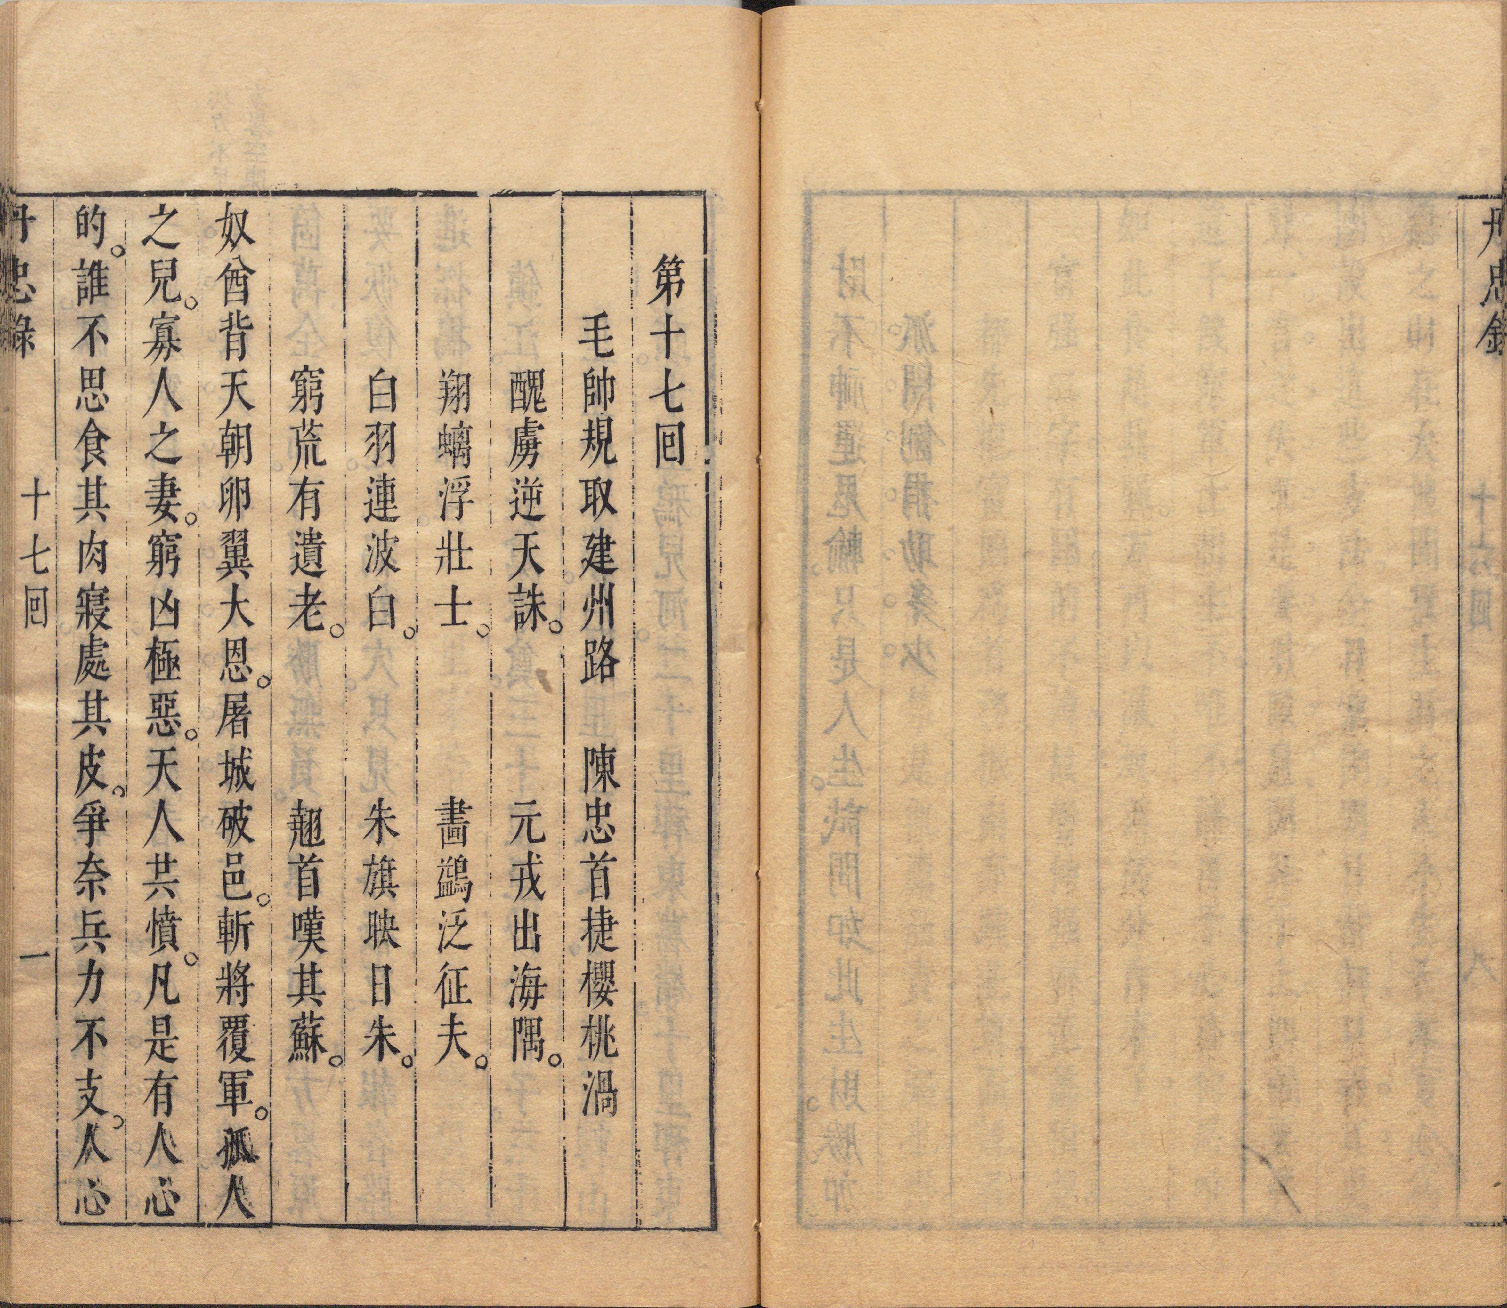 丹忠錄
第十七回
毛帥規取建州路　陳忠首捷櫻桃渦
醜虜逆天誅。　元戎出海隅。
翔螭浮壯士。　畫鷁泛征夫。
白羽連波白。　朱旗映日朱。
窮荒有遺老。　翹首嘆其蘇。
奴酋背天朝卵翼大恩。屠城破邑。斬將覆軍。孤人
之兒。寡人之妻。窮凶極惡。天人共憤。凡是有人心
的。誰不思食其肉寢處其皮。爭奈兵力不支。人心
丹忠錄　十七回　一